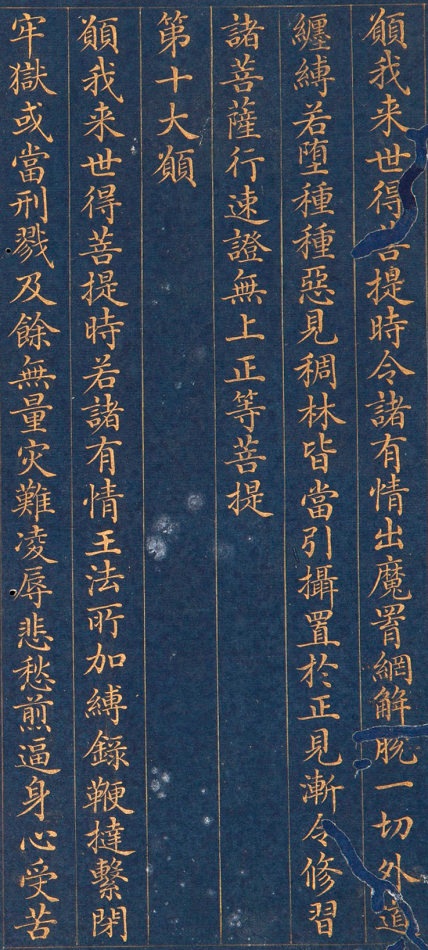 願我来世得菩提時令諸有情出魔罥網解脫一切外道
纏縛若墮種種惡見稠林皆當引攝置於正見漸令修習
諸菩薩行速證無上正等菩提
第十大願
願我来世得菩提時若諸有情王法所加縛錄鞭撻繫閉
牢獄或當刑戮及餘無量灾難凌辱悲愁煎逼身心受苦